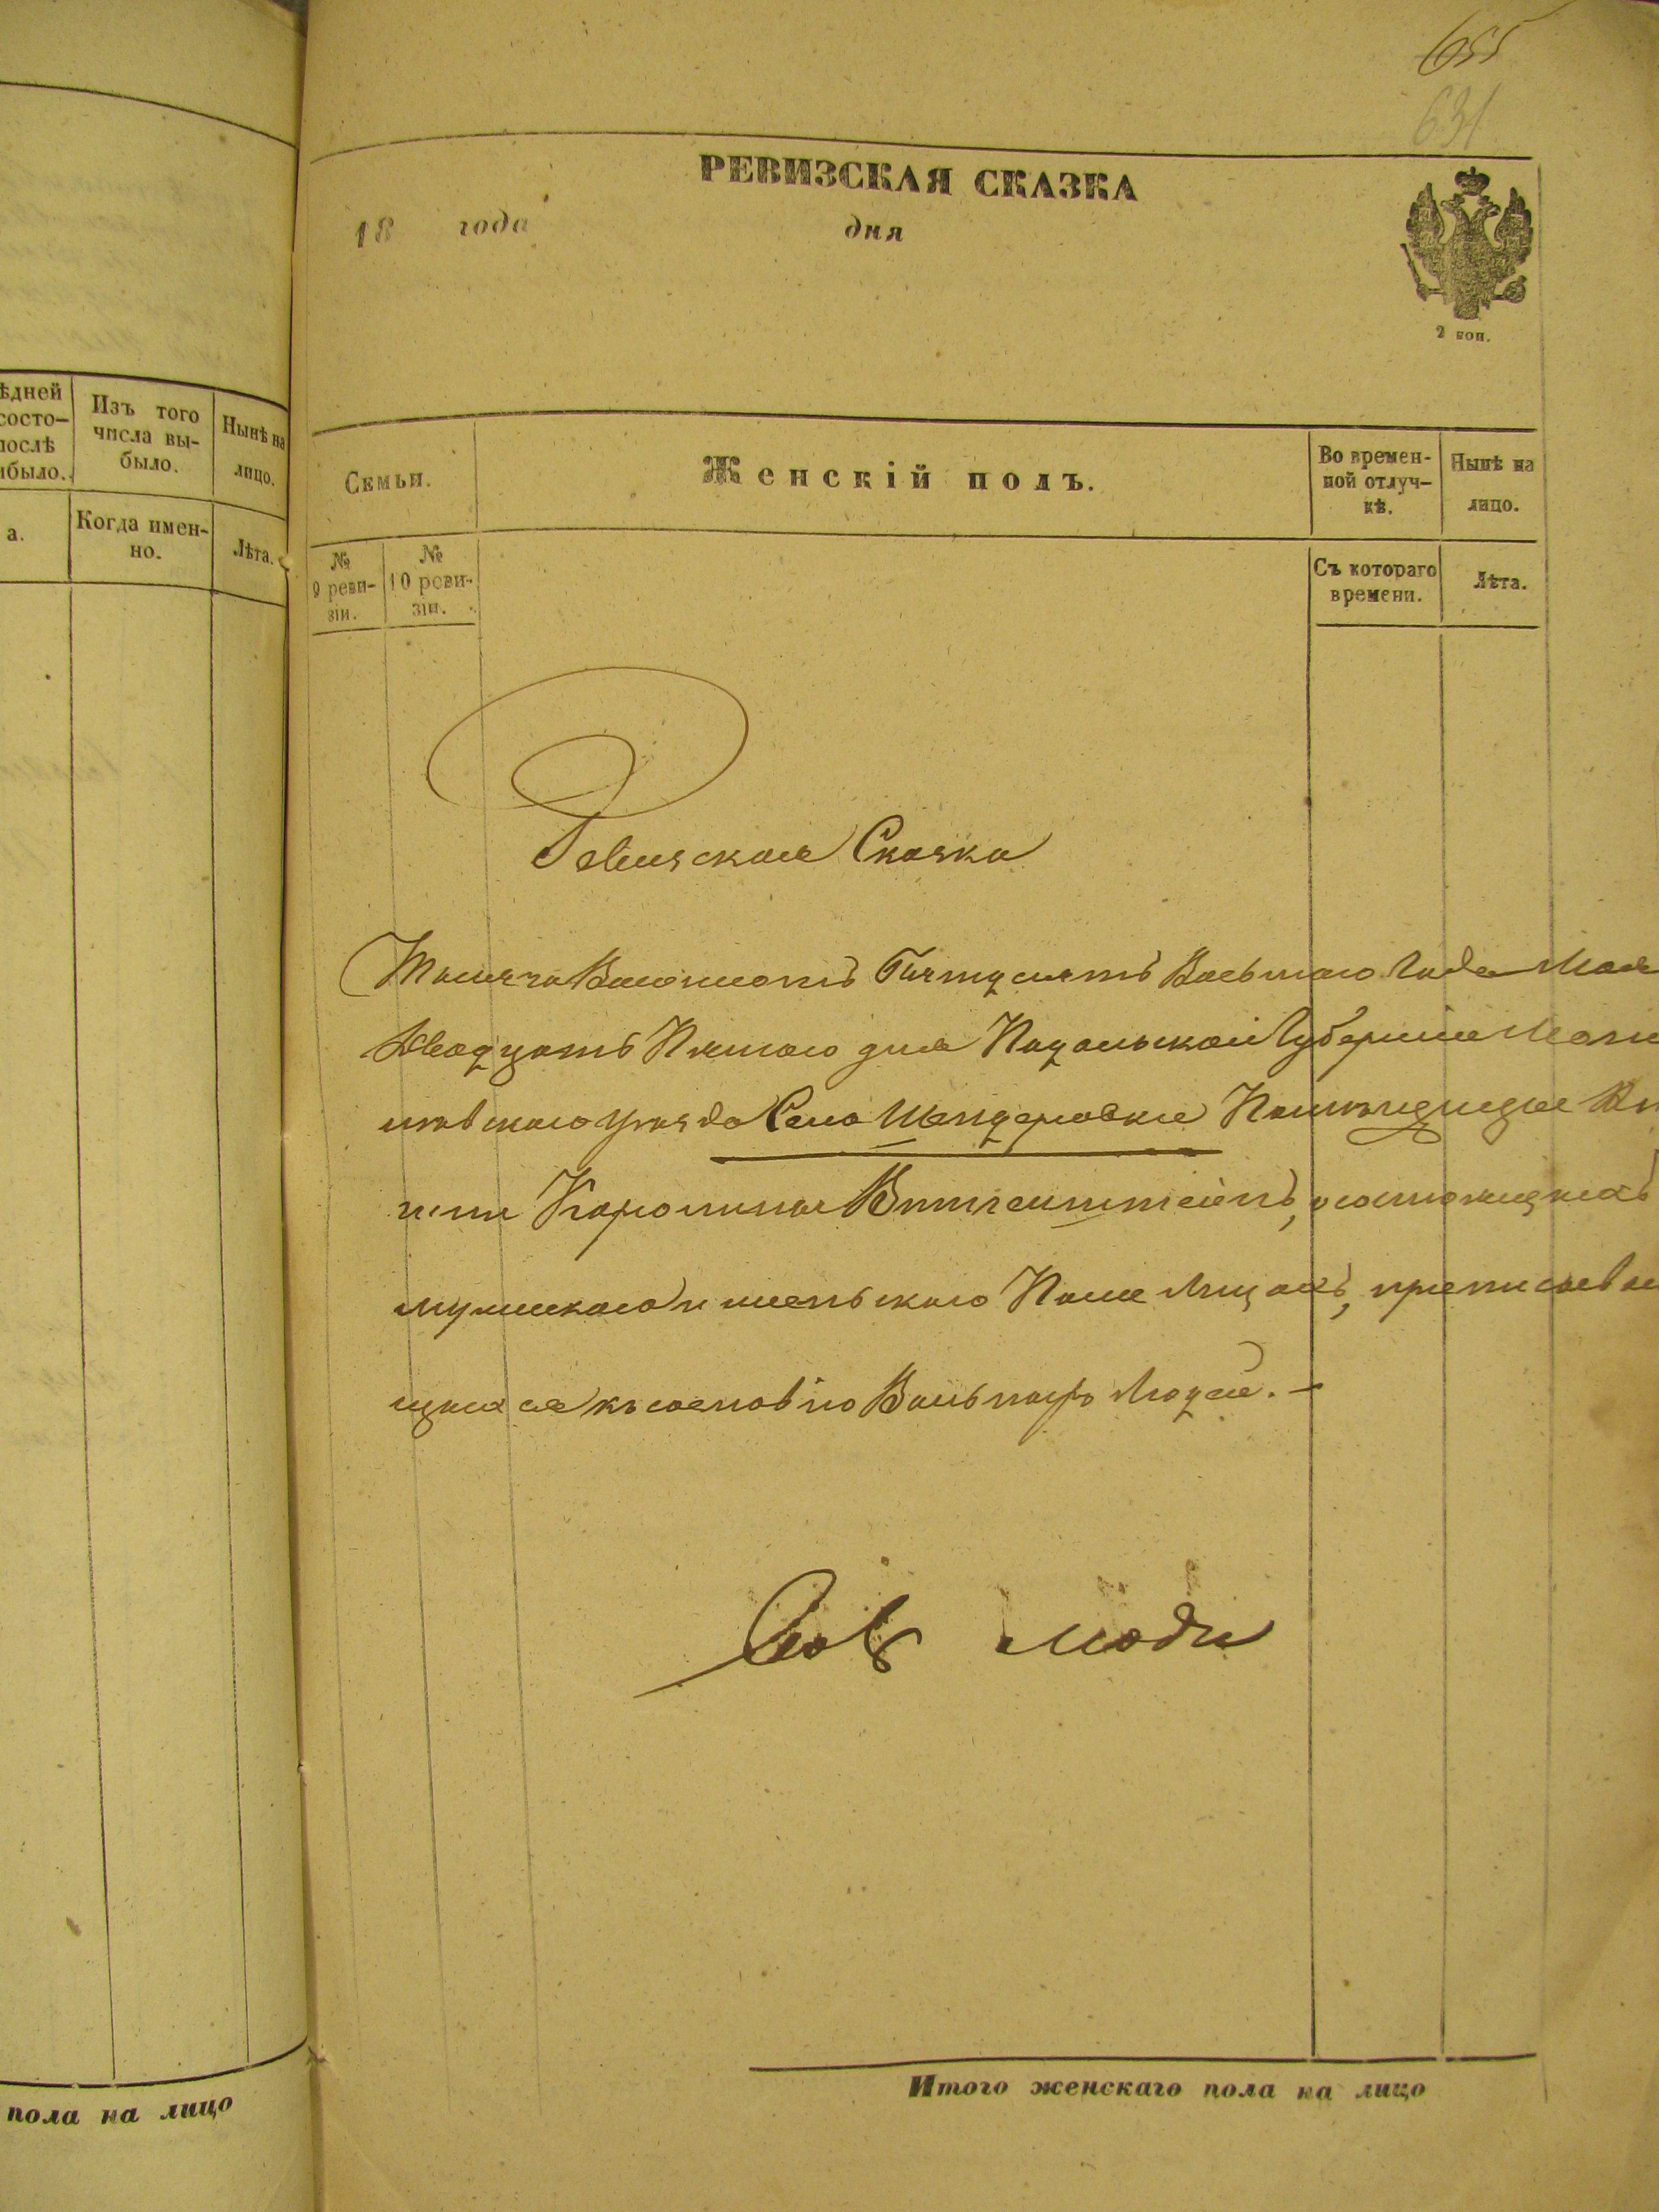 655
631
РЕВИЗСКАЯ СКАЗКА
18 года дня
2 коп.
ѣдней
состо-
послѣ
ибыло.
Изъ того
числа вы-
было.
Нынѣ на
лицо.
а.
Когда имен-
но.
Лѣта.
Семьи.
Женскій полъ.
Во времен-
ной отлуч-
кѣ.
Нынѣ на
лицо.
№
9 реви-
зіи.
№
10 реви-
зіи.
Съ котораго
времени.
Лѣта.
Ревизская Сказка
Тысяча Восемсотъ Пятдесятъ Восьмаго Года Мая
Двадцать Пятаго дня Подольской Губерніи Моги
левскаго Уезда Села Шендеровки Помѣщицы Кн
Каролины Витгенштейнъ, состоящихъ
мужескаго и женьскаго Пола Лицахъ, приписавши
хся къ сословію Вольныхъ Людей. —
люди
Итого женскаго пола на лицо
пола на лицо